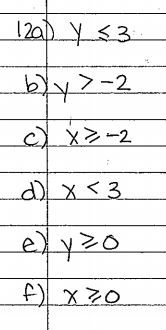 12a) y ≤ 3
b) y > -2
c) x ≥ -2
d) x < 3
e) y ≥ 0
f) x ≥ 0